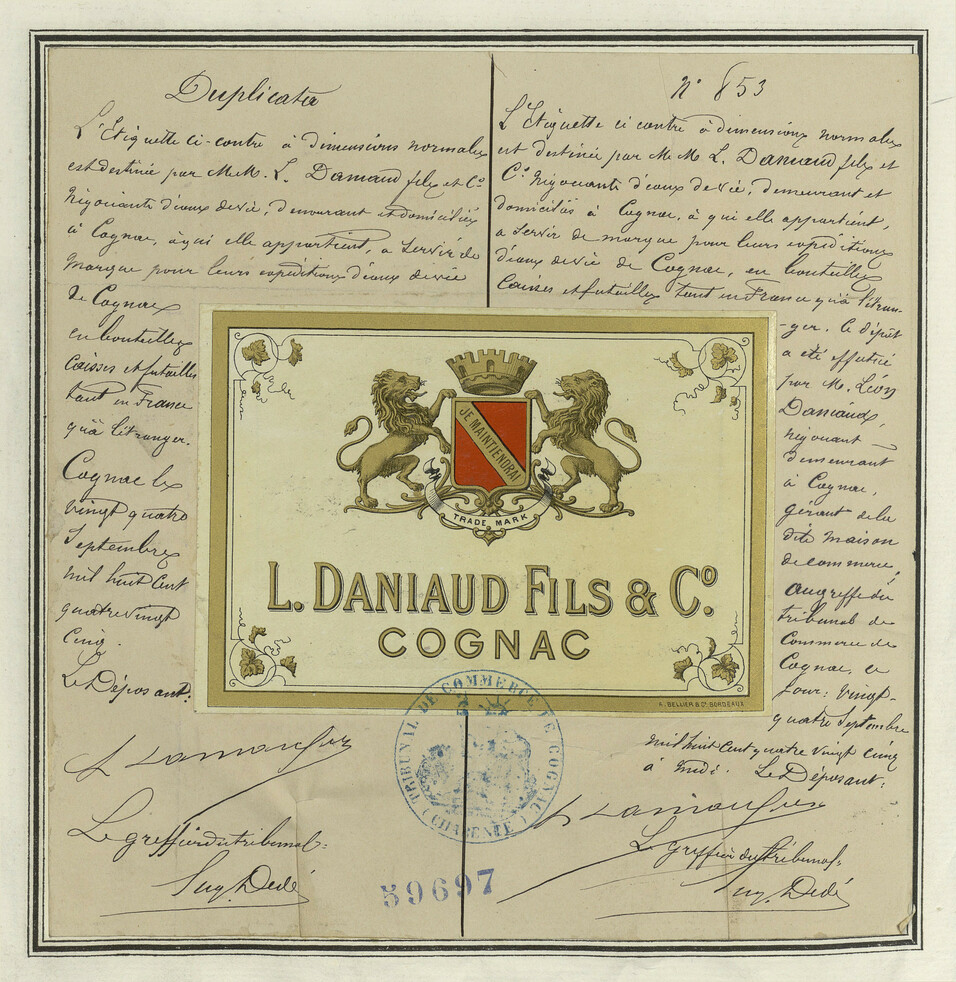 Duplicata
L'Etiquette ci-contre à dimensions normales
est destinée par M.M. L. Daniaud fils et Co
Négociants d'eaux de vie, demeurant et domiciliés
à Cognac, à qui elle appartient, a servir de
marque pour leurs expéditions d'eaux de vie
de Cognac
en bouteilles
Caisses et futailles
tant en France
qu'à l'étranger.
Cognac le
vingt quatre
Septembre
mil huit Cent
quatre vingt
Cinq.
Le Déposant:
Le greffier du tribunal:
Aug. Dedé
N° 853
L'Etiquette ci contre à dimensions normales
est destinée par M.M. L. Daniaud fils et
Co Négociants d'eaux de vie, demeurant et
domiciliés à Cognac, à qui elle appartient,
a servir de marque pour leurs expéditions
d'eaux de vie de Cognac, en bouteilles
Caisses et futailles tant en France qu'à l'étran-
-ger. Le dépôt
a été effectué
par M. Léon
Daniaud,
négociant
demeurant
à Cognac,
gérant de la
dite maison
de commerce,
au greffe du
tribunal de
Commerce de
Cognac, ce
jour: vingt-
quatre Septembre
mil huit Cent quatre vingt cinq
à midi. Le Déposant:
Le greffier du tribunal:
Aug. Dedé
JE MAINTIENDRAI
TRADE MARK
L. DANIAUD FILS & Co.
COGNAC
F. BELLIER & Cie BORDEAUX
TRIBUNAL DE COMMERCE DE COGNAC
(CHARENTE)
59697